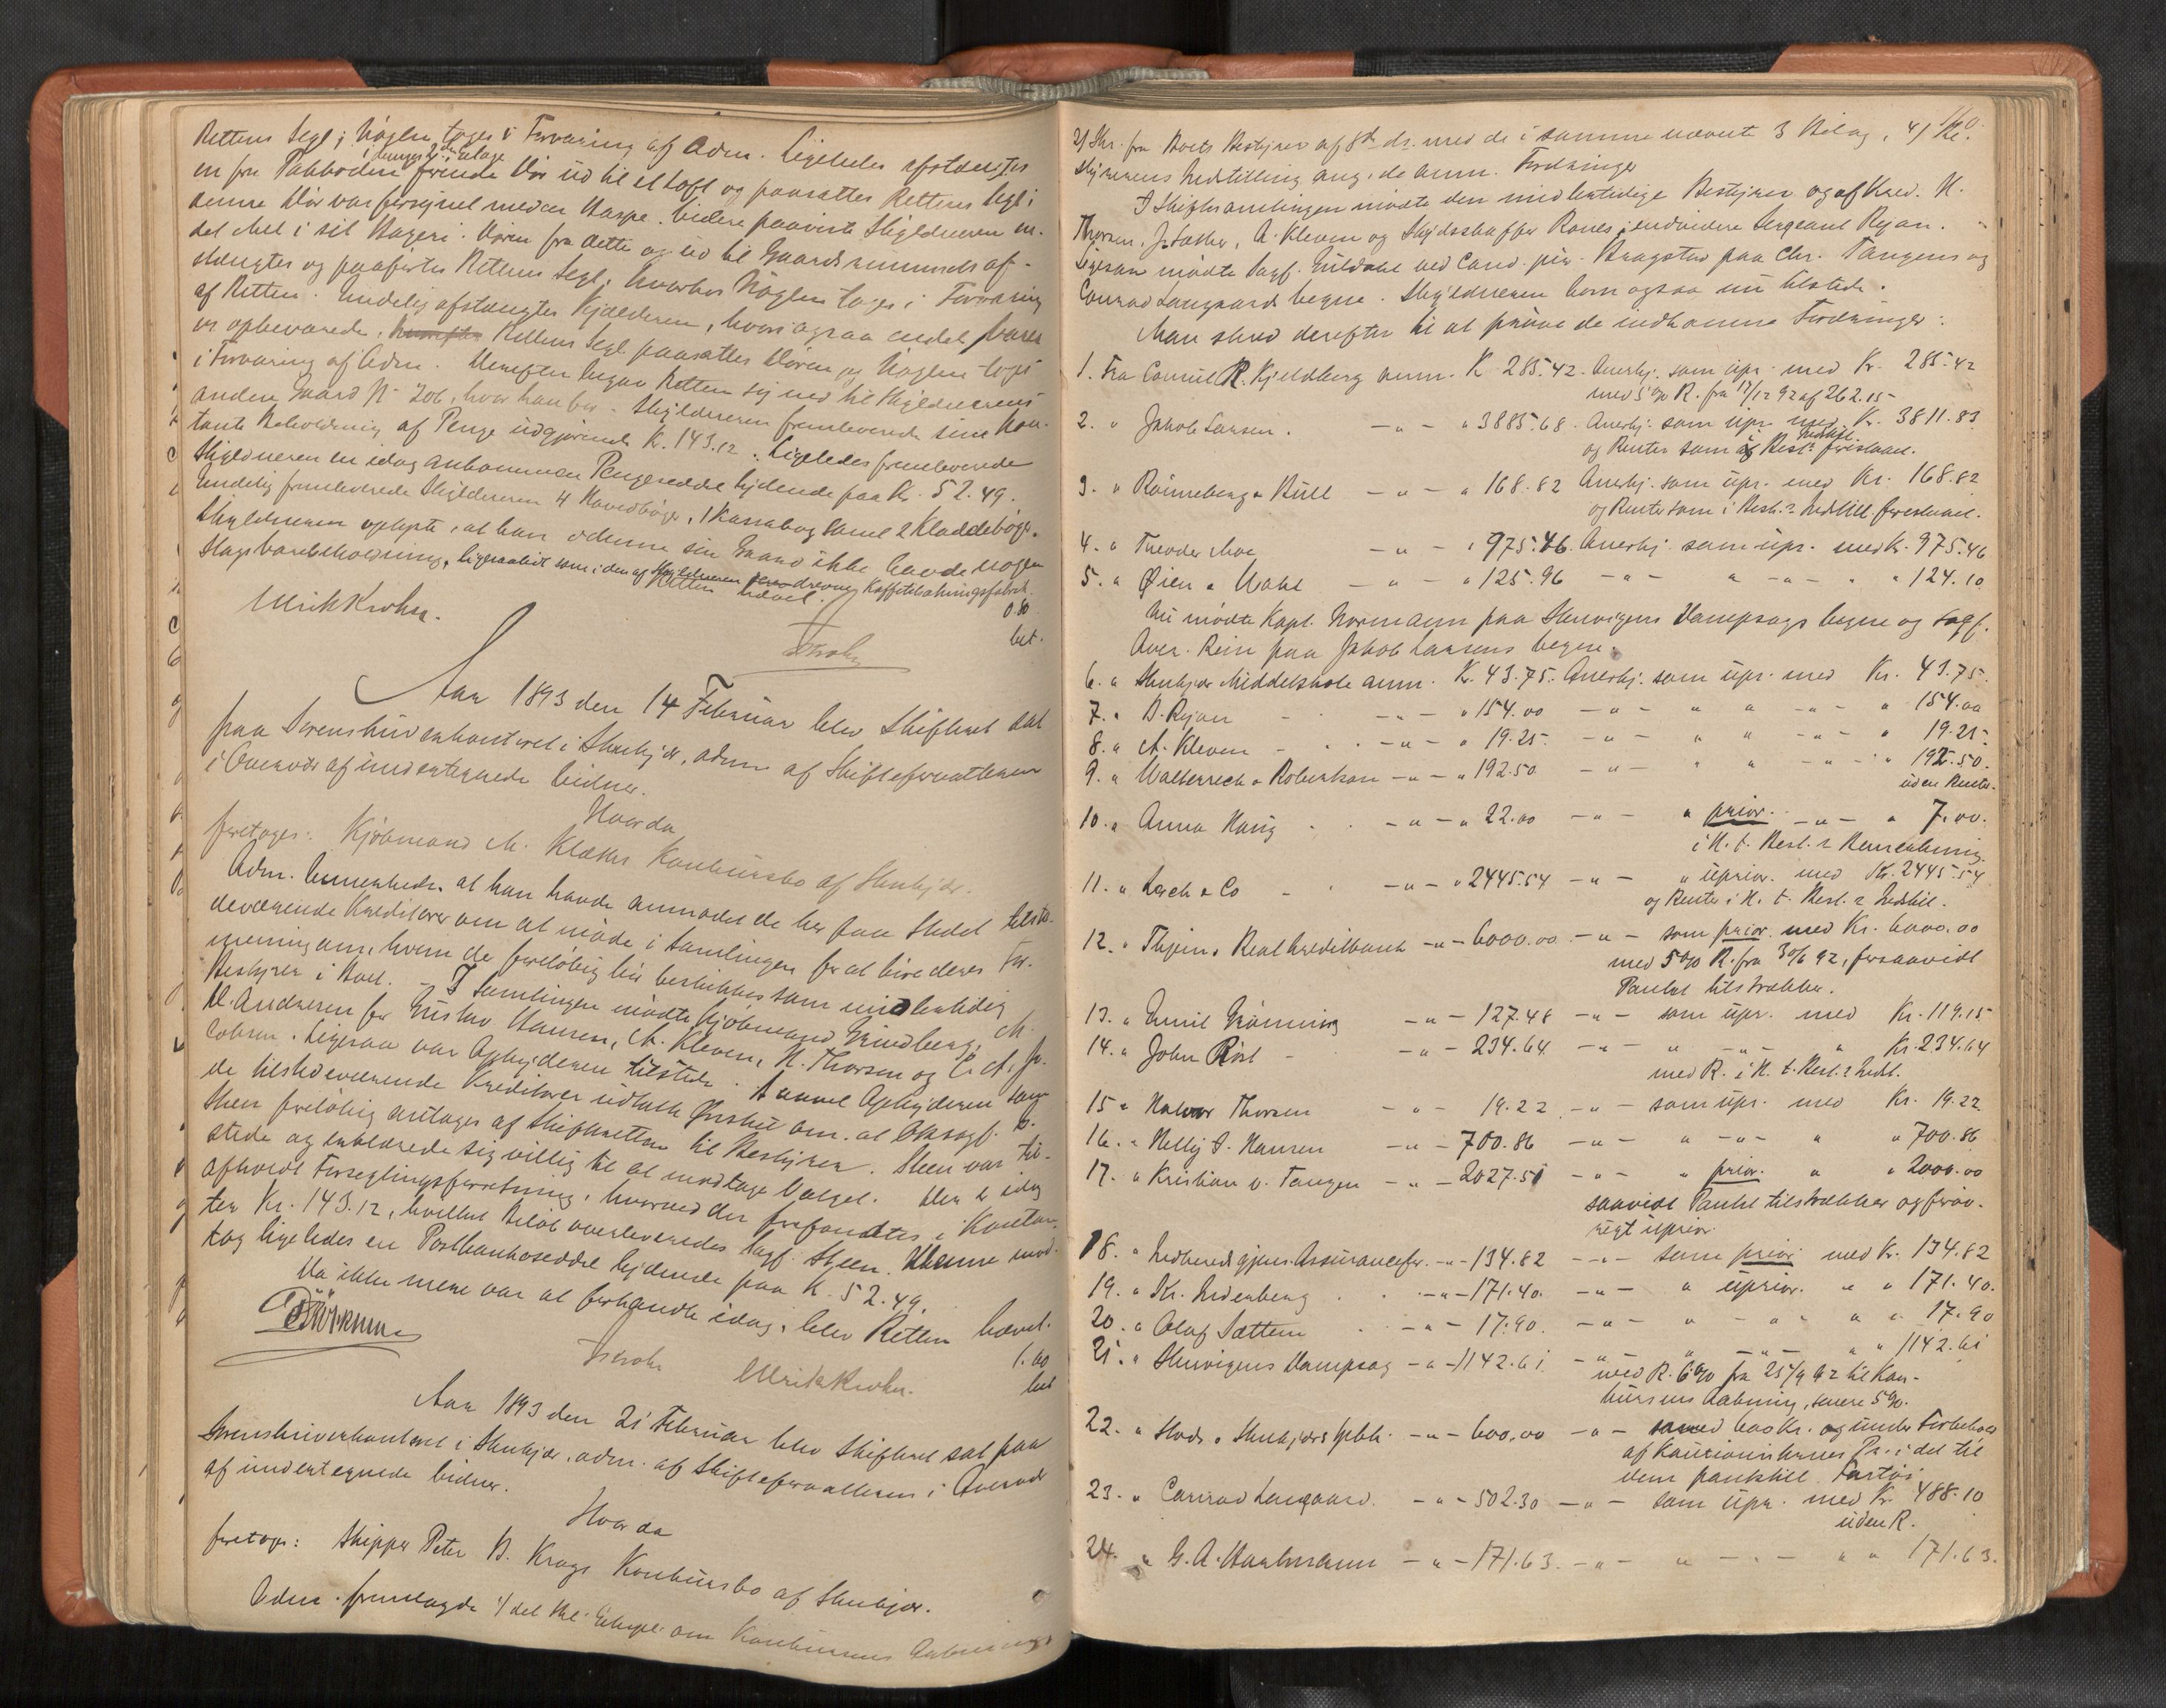 Rettens Segl; Nøglen toges i Forvaring af Adm. Ligeledes afstængtes
en fra Pakboden i denges 2den Etage førende Dør ud til et Loft og paasattes Rettens Segl i
denne Dør var forsynet med en Haspe. Videre paaviste Skyldneren en
del Mel i sit Bageri. Døren fra dette og ud til Gaardsrummet af-
stængtes og paaførtes Rettens Segl, hvorhos Nøglen toges i Forvaring
af Retten. Endelig afstængtes Kjælderen, hvori ogsaa endel Varer
var opbevarede. Rettens Segl paasattes Døren og Nøglen toges
i Forvaring af Adm. Derefter begav Retten sig ned til Skyldnerens
anden Gaard No 206, hvor han bor. Skyldneren fremleverede sin Kon-
tante Beholdning af Penge udgjørende K. 143.12. Ligeledes fremleverede
Skyldneren en idag ankommen Pengeseddel lydende paa Kr. 52.49.
Endelig fremleverede Skyldneren 4 Hovedbøger, 1 Kassabog samt 2 Kladdebøger.
Skyldneren oplyste, at han i denne sin Gaard ikke havde nogen
Slags Varebeholdning, ligesaalidt som i den af Skyldneren drevne Kaffetilvirkningsfabrik.
Retten hævet.
0.80
bet.
Ulrik Krohn.
Krohn
Aar 1893 den 14 Februar blev Skifteret sat
paa Sorenskriverkontoret i Stenkjær, adm. af Skifteforvalteren
i Overvær af undertegnede Vidner.
Hvorda
foretoges: Kjøbmand M. Klæths Konkursbo af Stenkjær.
Adm. bemærkede, at han havde anmodet de her paa Stedet tilste-
deværende Kreditorer om at møde i Samlingen for at høre deres For-
mening om, hvem de foreløbig bør beskikkes som midlertidig
Bestyrer i Boet. – I Samlingen mødte Kjøbmand Grindberg, M.
M. Andresen for Gustav Hansen, A. Kleven, H. Thorsen og E. A. Ja-
cobsen. Ligesaa var Opbyderen tilstede. Saavel Opbyderen som
de tilstedeværende Kreditorer udtalte Ønske om, at Oksagf. O.
Steen foreløbig antages af Skifteretten til Bestyrer. Steen var til-
stede og erklærede sig villig til at modtage Valget. Der er idag
afholdt Forseglingsforretning, hvorved der forefandtes i Kontan-
ter Kr. 143.12, hvilket Beløb overleveredes Sagf. Steen. Denne mod-
tog ligeledes en Postbankoseddel lydende paa K. 52.49.
Da ikke mere var at forhandle idag, blev Retten hævet.
1.00
bet
Krohn
Ulrik Krohn.
Aar 1893 den 21 Februar blev Skifteret sat paa
Sorenskriverkontoret i Stenkjær, adm. af Skifteforvalteren i Overvær
af undertegnede Vidner.
Hvorda
foretoges: Skipper Peter B. Krogs Konkursbo af Stenkjær.
Adm. fremlagde 1/ det Kgl. om Konkursens Aabning
2/ Skr. fra Boets Bestyrer af 8de ds. med de i samme nævnte 3 Bilag,
styrerens Indstilling ang. de anm. Fordringer
I Skiftesamlingen mødte den midlertidige Bestyrer og af Kred. H.
Thorsen, J. Sæther, A. Kleven og Skydsskaffer Rones; endvidere Sergeant Rejan.
Ligesaa mødte Sagf. Guldahl ved Cand. jur. Bragstad paa Chr. Tangens og
Conrad Langaards Vegne. Skyldneren kom ogsaa nu tilstede.
Man skred derefter til at prøve de indkomne Fordringer:
1. Fra Consul R. Kjeldberg anm. K 285.42. Anerkj. som upr. med Kr. 285.42
med 5% R. fra 17/12 92 af 262.15
2. " Jakob Larsen. – " – " 3885.68. Anerkj. som upr. med Kr. 3811.83
og Renter som i Best. Indstill. foreslaaet.
3. " Rønneberg & Bull – " – " 168.82 Anerkj. som upr. med Kr. 168.82
og Renter som i Best.s Indstill. foreslaaet.
4. " Theodor Moe – " – " 975.46. Anerkj. som upr. med K. 975.46
5. " Øien & Wahl – " – " 125.96 – " – " – " – " " 124.10
Nu mødte Kapt. Normann paa Stenvigens Dampsags Vegne og Sagf.
Aver. Rein paa Jakob Larsens Vegne.
6. " Stenkjær Middelskole anm. Kr. 43.75. Anerkj. som upr. med Kr. 43.75.
7. " B. Rejan – " – " 154.00 – " – " " – " – " 154.00
8. " A. Kleven – " – " 19.25. – " – " " – " – " 19.25
9. " Walterreck & Robertson – " – " 192.50 – " – " " – " – " 192.50.
uden Renter.
10. " Anna Haug – " – " 22.00 – " – " prior. – " – " 7.00.
i H. t. Best.s Bemærkning.
11. " Lerch & Co – " – " 2445.54 – " – " uprior. med Kr. 2445.54
og Renter i H. t. Best.s Indstil.
12. " Thjem. Realkreditbank – " – 6000.00 – " – som prior. med Kr. 6000.00
med 5% R. fra 30/6 92, forsaavidt
Pantet tilstrækker.
13. " Emil Grønning – " – 127.48 – " – som upr. med Kr. 119.15
14. " John Rist – " – 234.64 – " – " – " – " Kr. 234.64
med R. i H. t. Best.s Indst.
15 " Halvor Thorsen – " – 19.22 – " – som upr. med Kr. 19.22
16. " Nelly J. Hansen – " – 700.86 – " – " – " – " " 700.86
17. " Kristian v. Tangen – " – 2027.51 – " – " prior. " " 2000.00
saavidt Pantet tilstrækker og forøv-
rigt uprior.
18. " Indherreds gjens. Assurancefor. – " – 134.82 – " – som prior. med Kr. 134.82
19. " Kr. Lindenberg – " – 171.40. – " – " uprior. " " 171.40.
20. " Olaf Sættem – " – 17.90. – " – " – " " " 17.90
21. " Stenvigens Dampsag – " – 1142.61 – " – " – " – " " 1142.61
med R. 6% fra 25/9 92 til Kon-
kursens Aabning, senere 5%.
22. " Stods & Stenkjærs Spbk. – " – 600.00 – " – med 600 Kr. og under Forbehold
af Kautionisternes Pr. i det til
dem pantstill. Fartøi
23. " Conrad Langaard. – " – 502.30 – " – som upr. med Kr. 488.10
uden R.
24. " G. A. Haalmann – " – 171.63. – " – " – " – " " 171.63.